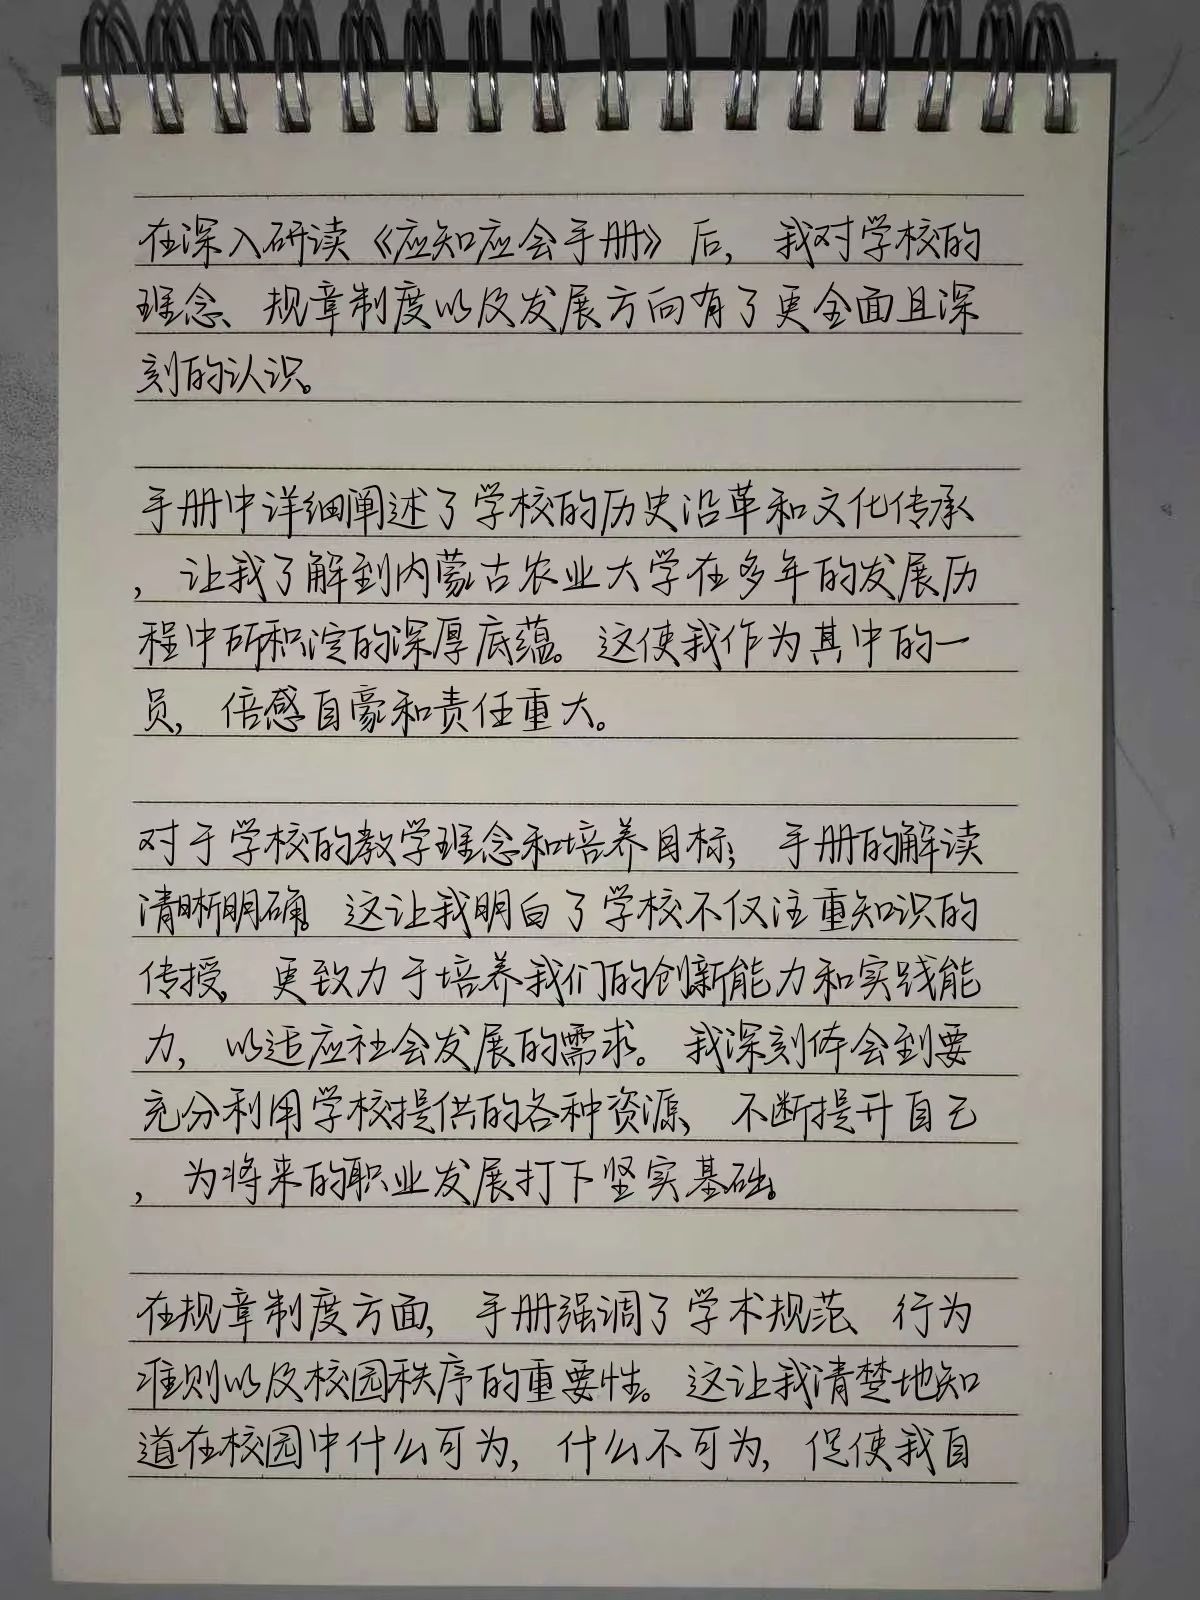 在深入研读《应知应会手册》后，我对学校的
理念、规章制度以及发展方向有了更全面且深
刻的认识。
手册中详细阐述了学校的历史沿革和文化传承
，让我了解到内蒙古农业大学在多年的发展历
程中所积淀的深厚底蕴。这使我作为其中的一
员，倍感自豪和责任重大。
对于学校的教学理念和培养目标，手册的解读
清晰明确。这让我明白了学校不仅注重知识的
传授，更致力于培养我们的创新能力和实践能
力，以适应社会发展的需求。我深刻体会到要
充分利用学校提供的各种资源，不断提升自己
，为将来的职业发展打下坚实基础。
在规章制度方面，手册强调了学术规范、行为
准则以及校园秩序的重要性。这让我清楚地知
道在校园中什么可为，什么不可为，促使我自